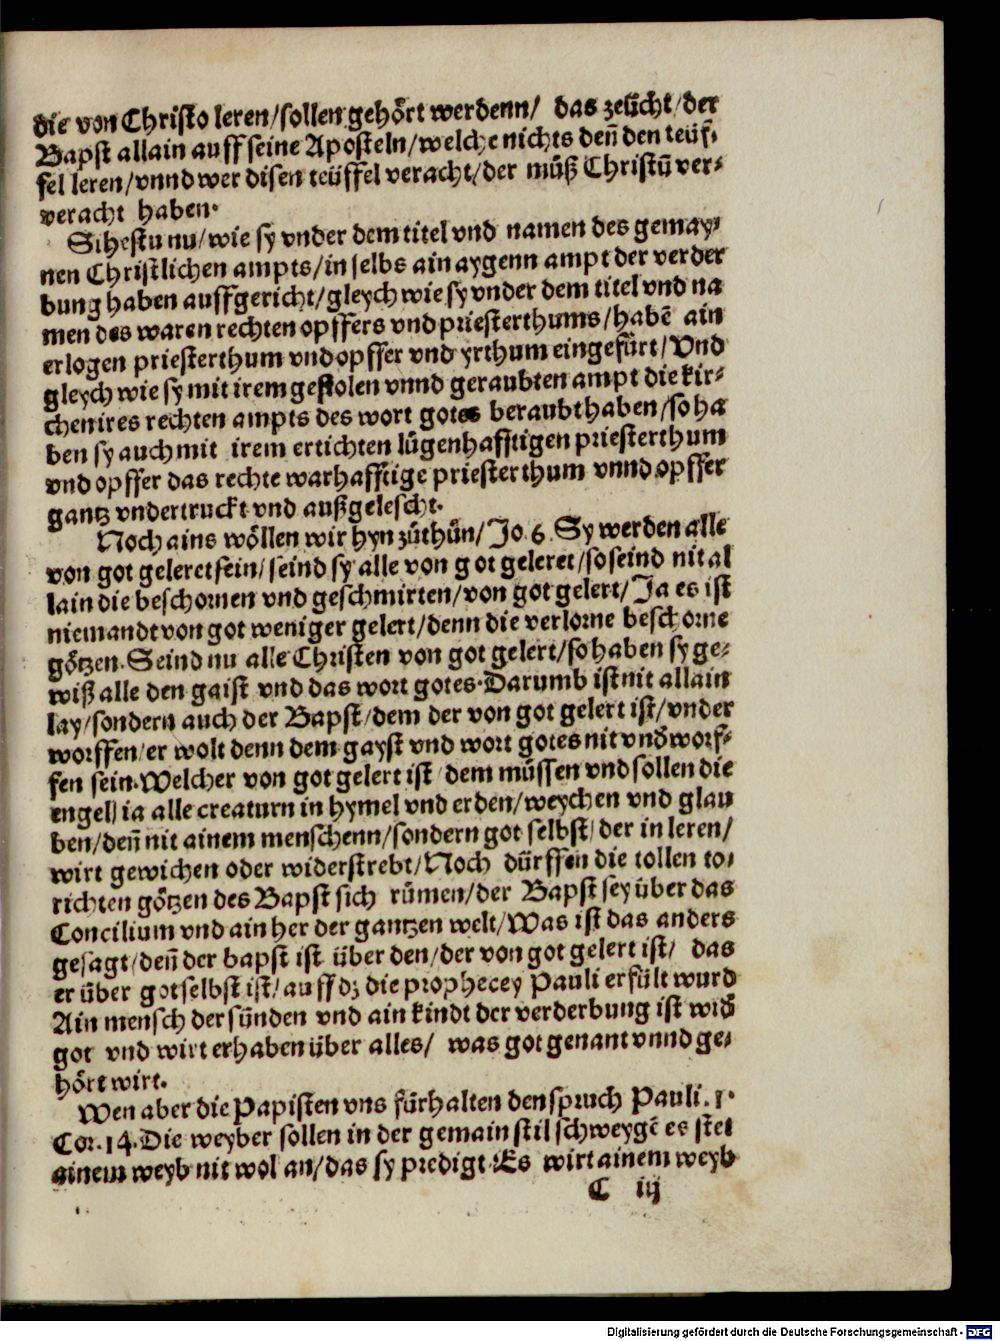 die von Christo leren/sollen gehört werdenn/ das zeücht/der
Bapst allain auff seine Aposteln/welche nichts deñ den teüf-
fel leren/vnnd wer disen teüffel veracht/der můß Christū ver-
veracht haben.
Sihestu nu/wie sy vnder dem titel vnd namen des gemay-
nen Christlichen ampts/in selbs ain aygenn ampt der verder
bung haben auffgericht/gleych wie sy vnder dem titel vnd na
men des waren rechten opffers vnd priesterthums/habē ain
erlogen priesterthum vnd opffer vnd yrthum eingefürt/Vnd
gleych wie sy mit irem gestolen vnnd geraubten ampt die kir-
chen ires rechten ampts des wort gotes beraubt haben/so ha
ben sy auch mit irem ertichten lůgenhafftigen priesterthum
vnd opffer das rechte warhafftige priesterthum vnnd opffer
gantz vndertruckt vnd außgelescht.
Noch ains wöllen wir hyn zůthůn/Jo.6.Sy werden alle
von got geleret sein/seind sy alle von got geleret/so seind nit al
lain die beschornen vnd geschmirten/von got gelert/Ja es ist
niemandt von got weniger gelert/denn die verlorne beschorne
götzen.Seind nu alle Christen von got gelert/so haben sy ge-
wiß alle den gaist vnd das wort gotes.Darumb ist nit allain
lay/sondern auch der Bapst/dem der von got gelert ist/vnder
worffen/er wolt denn dem gayst vnd wort gotes nit vnd̄worf-
fen sein.Welcher von got gelert ist/dem müssen vnd sollen die
engel/ia alle creaturn in hymel vnd erden/weychen vnd glau
ben/deñ nit ainem menschenn/sondern got selbst/der in leren/
wirt gewichen oder widerstrebt/Noch dürffen die tollen to-
richten götzen des Bapst sich rümen/der Bapst sey über das
Concilium vnd ain her der gantzen welt/Was ist das anders
gesagt/deñ der bapst ist über den/der von got gelert ist/ das
er über got selbst ist/auff dz die prophecey Pauli erfült wurd
Ain mensch der sünden vnd ain kindt der verderbung ist wid̄
got vnd wirt erhaben über alles/ was got genant vnnd ge-
hört wirt.
Wen aber die Papisten vns fürhalten den spruch Pauli.1.
Cor.14.Die weyber sollen in der gemain stil schweygē es stet
ainem weyb nit wol an/das sy predigt.Es wirt ainem weyb
C iij
Digitalisierung gefördert durch die Deutsche Forschungsgemeinschaft - DFG